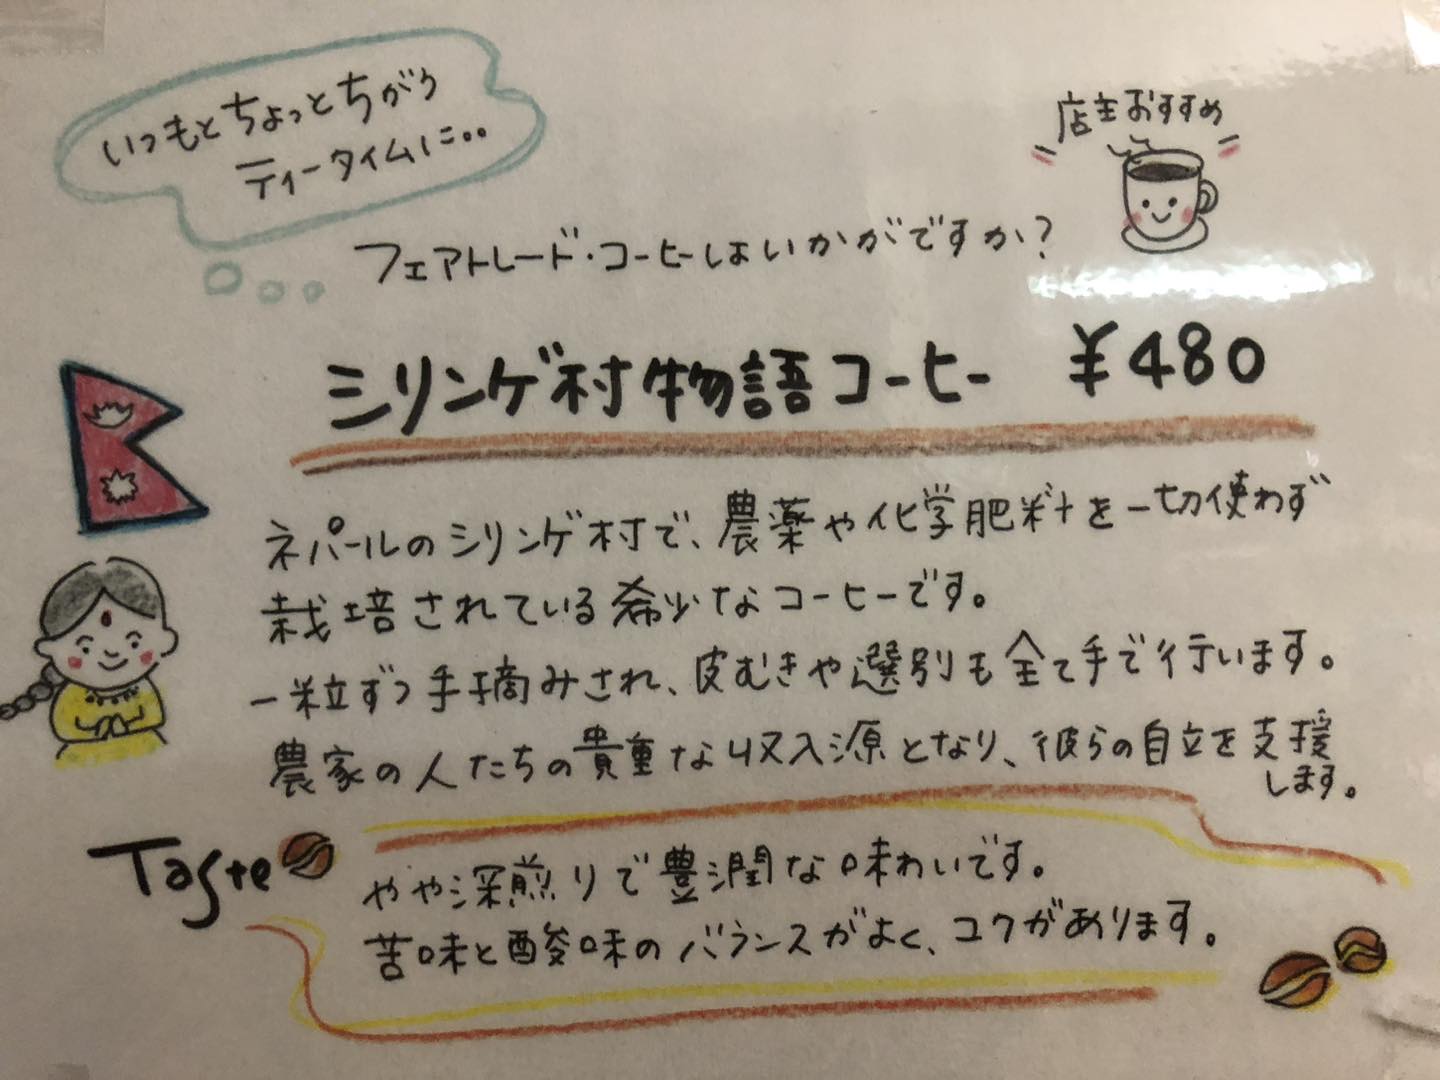 いつもとちょっとちがう
ティータイムに..
店主おすすめ
フェアトレード・コーヒーはいかがですか?
シリンゲ村物語コーヒー ¥480
ネパールのシリンゲ村で、農薬や化学肥料を一切使わず
栽培されている希少なコーヒーです。
一粒ずつ手摘みされ、皮むきや選別も全て手で行います。
農家の人たちの貴重な収入源となり、彼らの自立を支援
します。
Taste
やや深煎りで豊潤な味わいです。
苦味と酸味のバランスがよく、コクがあります。